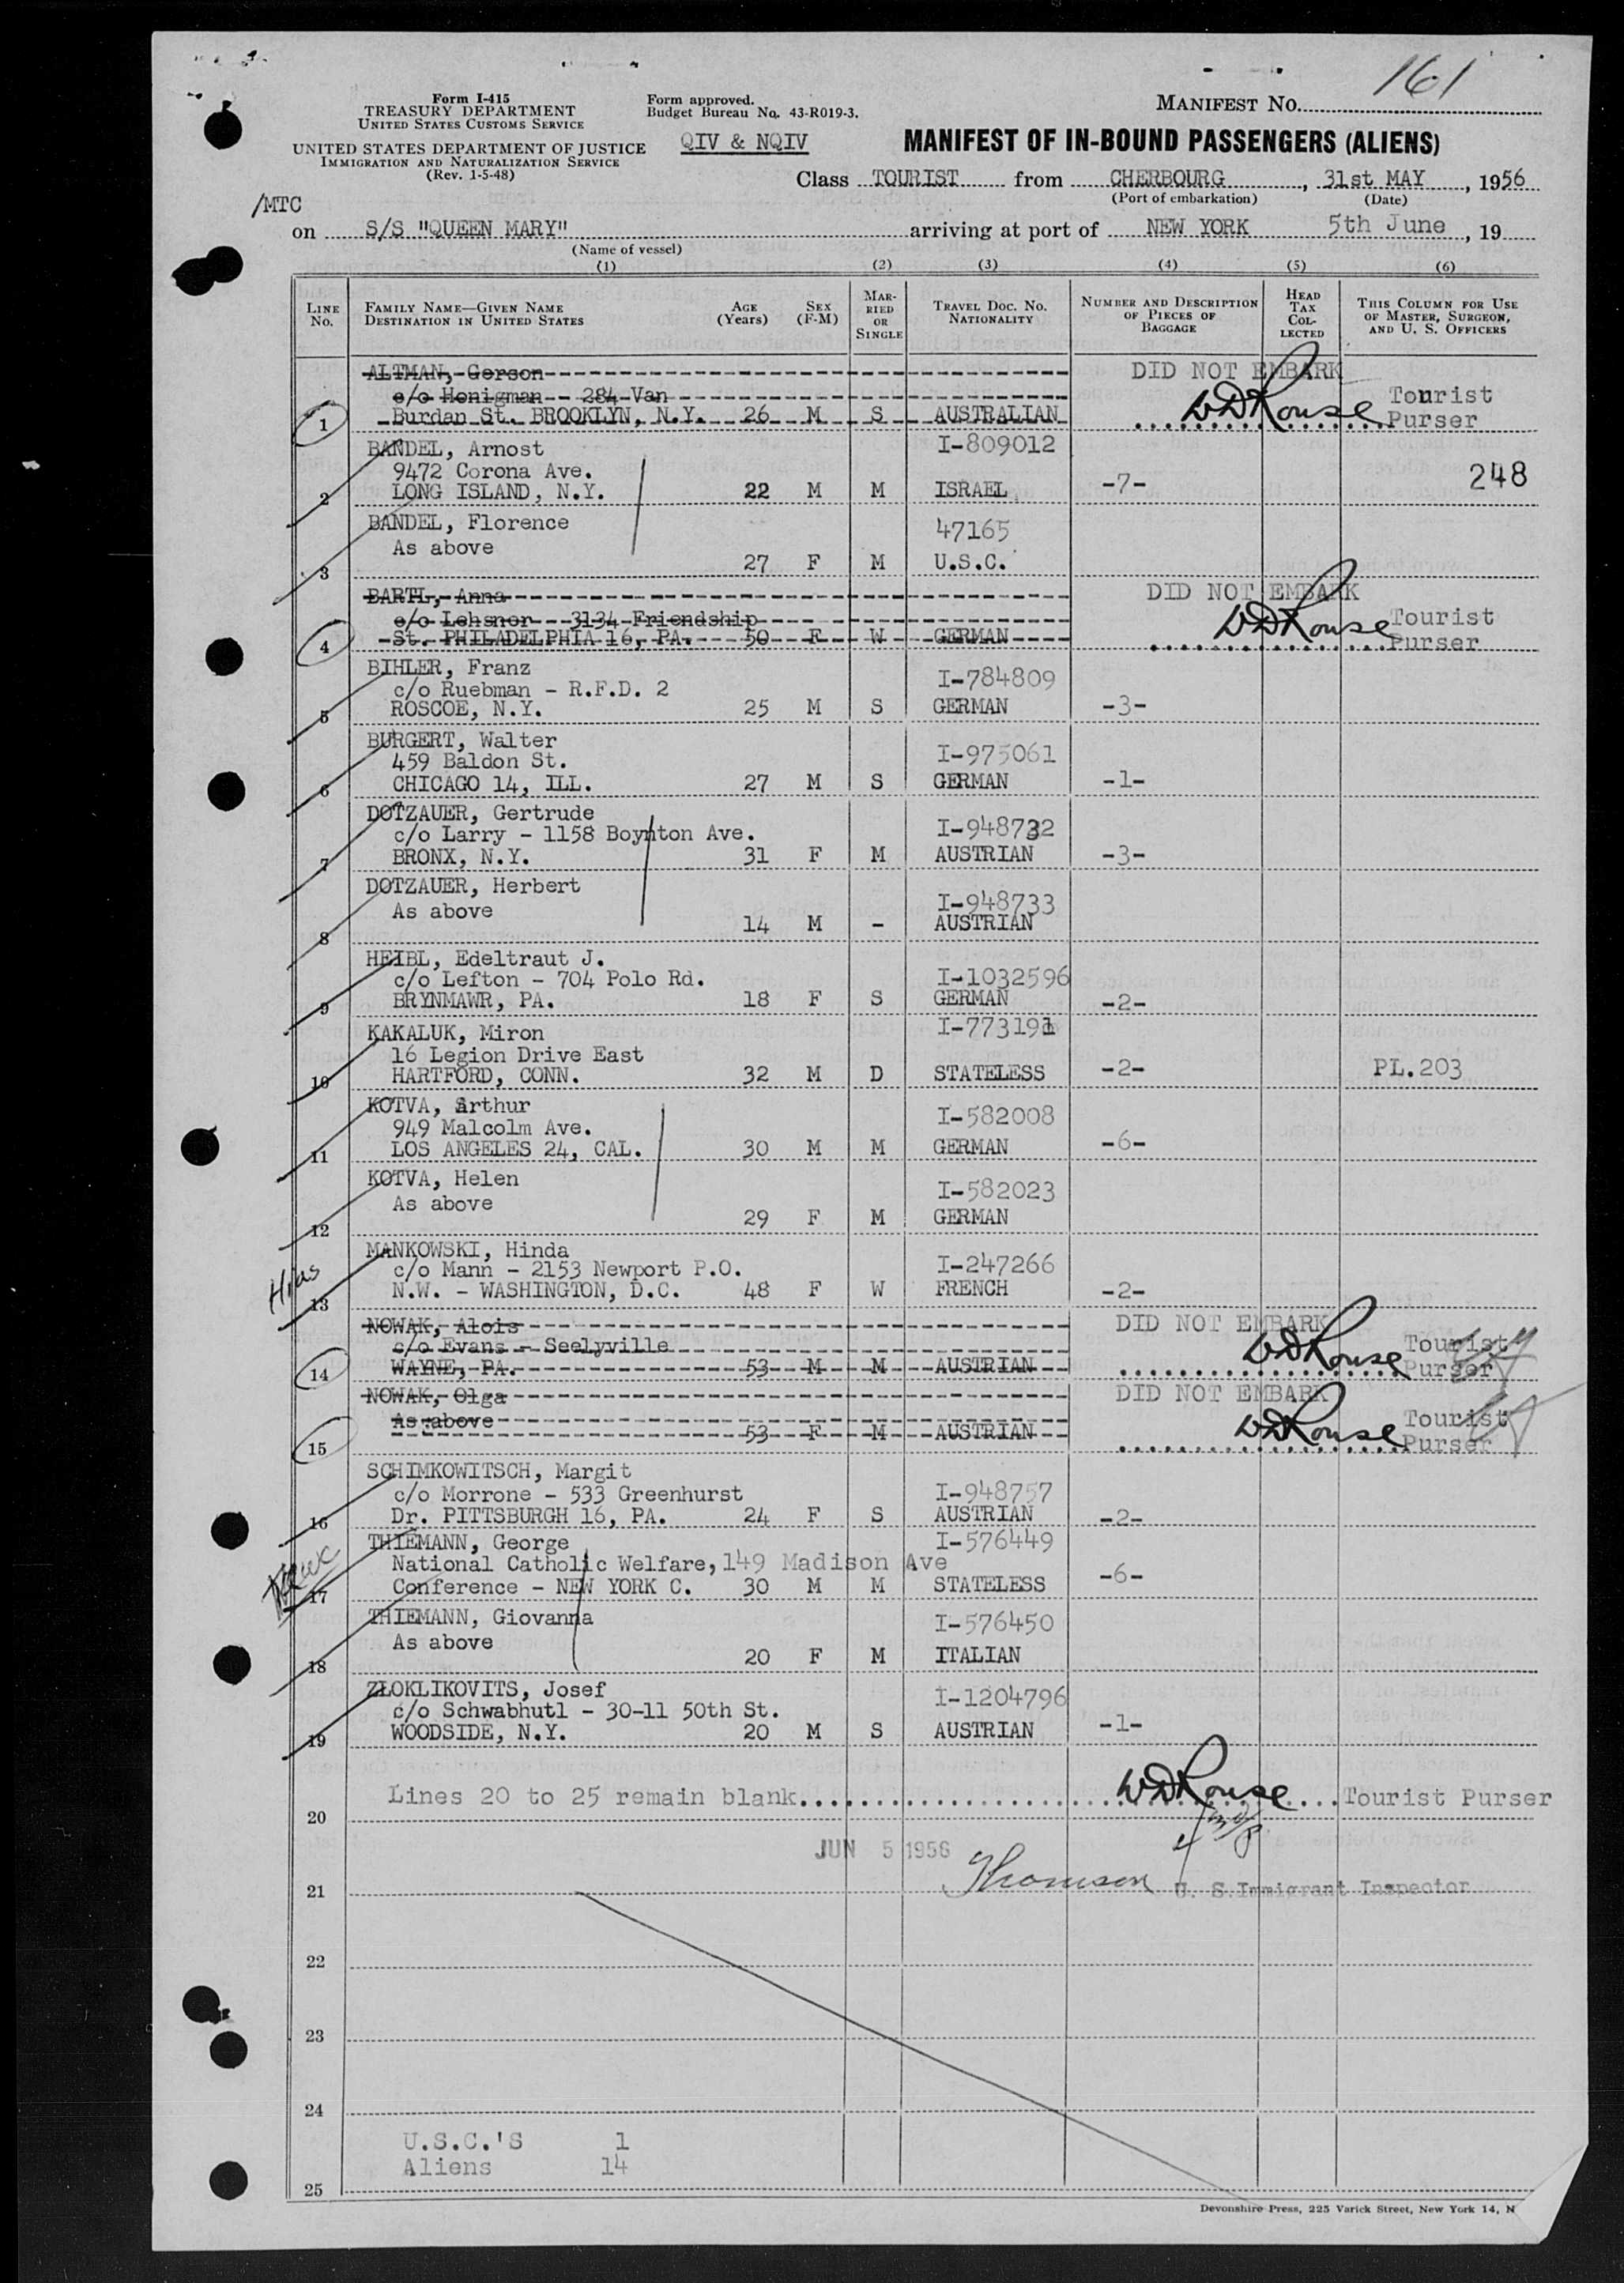 161
Form I-415
TREASURY DEPARTMENT
UNITED STATES CUSTOMS SERVICE
UNITED STATES DEPARTMENT OF JUSTICE
IMMIGRATION AND NATURALIZATION SERVICE
(Rev. 1-5-48)
Form approved.
Budget Bureau No. 43-R019-3.
QIV & NQIV
MANIFEST NO.
MANIFEST OF IN-BOUND PASSENGERS (ALIENS)
Class TOURIST from CHERBOURG, 31st MAY, 1956
(Port of embarkation) (Date)
/MTC
on S/S "QUEEN MARY" arriving at port of NEW YORK 5th June, 19
(Name of vessel)
(1) (2) (3) (4) (5) (6)
LINE NO.
FAMILY NAME—GIVEN NAME
DESTINATION IN UNITED STATES
AGE (Years)
SEX (F-M)
MARRIED OR SINGLE
TRAVEL DOC. NO.
NATIONALITY
NUMBER AND DESCRIPTION OF PIECES OF BAGGAGE
HEAD TAX COLLECTED
THIS COLUMN FOR USE OF MASTER, SURGEON, AND U. S. OFFICERS
ALTMAN, Gerson DID NOT EMBARK
c/o Honigman - 284 Van WDRouse Tourist
1 Burdan St. BROOKLYN, N.Y. 26 M S AUSTRALIAN Purser
BANDEL, Arnost I-809012
9472 Corona Ave. 248
2 LONG ISLAND, N.Y. 22 M M ISRAEL -7-
BANDEL, Florence 47165
As above
3 27 F M U.S.C.
BARTL, Anna DID NOT EMBARK
c/o Lehsner - 3134 Friendship WDRouse Tourist
4 St. PHILADELPHIA 16, PA. 50 F W GERMAN Purser
BIHLER, Franz I-784809
c/o Ruebman - R.F.D. 2
5 ROSCOE, N.Y. 25 M S GERMAN -3-
BURGERT, Walter I-975061
459 Baldon St.
6 CHICAGO 14, ILL. 27 M S GERMAN -1-
DOTZAUER, Gertrude I-948732
c/o Larry - 1158 Boynton Ave.
7 BRONX, N.Y. 31 F M AUSTRIAN -3-
DOTZAUER, Herbert I-948733
As above
8 14 M - AUSTRIAN
HEIBL, Edeltraut J. I-1032596
c/o Lefton - 704 Polo Rd.
9 BRYNMAWR, PA. 18 F S GERMAN -2-
KAKALUK, Miron I-773191
16 Legion Drive East
10 HARTFORD, CONN. 32 M D STATELESS -2- PL.203
KOTVA, Arthur I-582008
949 Malcolm Ave.
11 LOS ANGELES 24, CAL. 30 M M GERMAN -6-
KOTVA, Helen I-582023
As above
12 29 F M GERMAN
Hias
MANKOWSKI, Hinda I-247266
c/o Mann - 2153 Newport P.O.
13 N.W. - WASHINGTON, D.C. 48 F W FRENCH -2-
NOWAK, Alois DID NOT EMBARK
c/o Evans - Seelyville WDRouse Tourist
14 WAYNE, PA. 53 M M AUSTRIAN Purser
NOWAK, Olga DID NOT EMBARK
As above WDRouse Tourist
15 53 F M AUSTRIAN Purser
SCHIMKOWITSCH, Margit I-948757
c/o Morrone - 533 Greenhurst
16 Dr. PITTSBURGH 16, PA. 24 F S AUSTRIAN -2-
THIEMANN, George I-576449
National Catholic Welfare, 149 Madison Ave
17 Conference - NEW YORK C. 30 M M STATELESS -6-
THIEMANN, Giovanna I-576450
As above
18 20 F M ITALIAN
ZLOKLIKOVITS, Josef I-1204796
c/o Schwabhutl - 30-11 50th St.
19 WOODSIDE, N.Y. 20 M S AUSTRIAN -1-
Lines 20 to 25 remain blank WDRouse Tourist Purser
20
JUN 5 1956
Thomson U. S. Immigrant Inspector
21
22
23
24
U.S.C.'S 1
Aliens 14
25
Devonshire Press, 225 Varick Street, New York 14, N